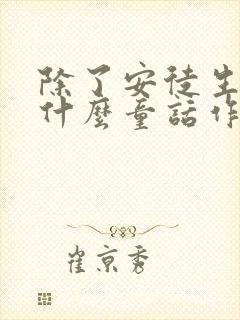 除了安徒生
什麼童話作
崔京秀